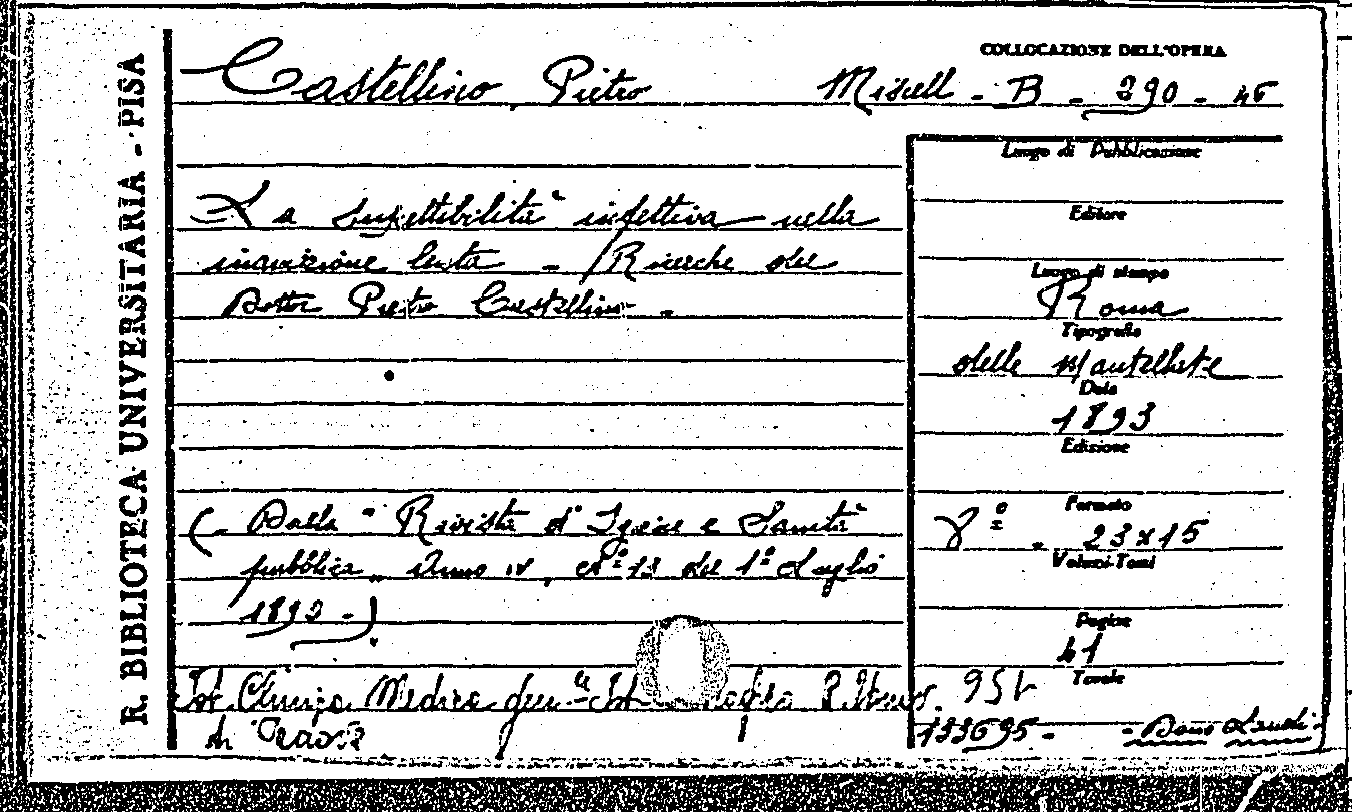 R. BIBLIOTECA UNIVERSITARIA - PISA
COLLOCAZIONE DELL'OPERA
Castellino Pietro
Miscell - B - 290 - 46
La suscettibilità infettiva nella
inanizione lenta - Ricerche del
Dottor Pietro Castellino -
Luogo di Pubblicazione
Editore
Luogo di stampa
Roma
Tipografia
delle Mantellate
Data
1893
Edizione
Formato
8º - 23x15
Volumi-Tomi
Pagine
41
Tavole
(- Dalla " Rivista d'Igiene e Sanità
pubblica " Anno IV, Nº 13 del 1º Luglio
1893 -)
Clinica Medica Gen.
133695 - - Dono